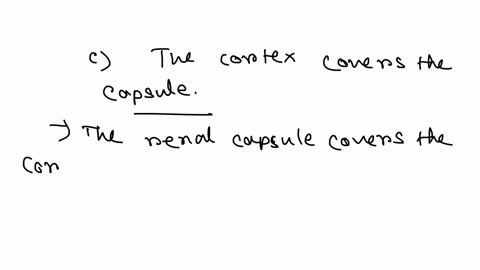 c) The cortex covers the
capsule.
→ The renal capsule covers the
cor